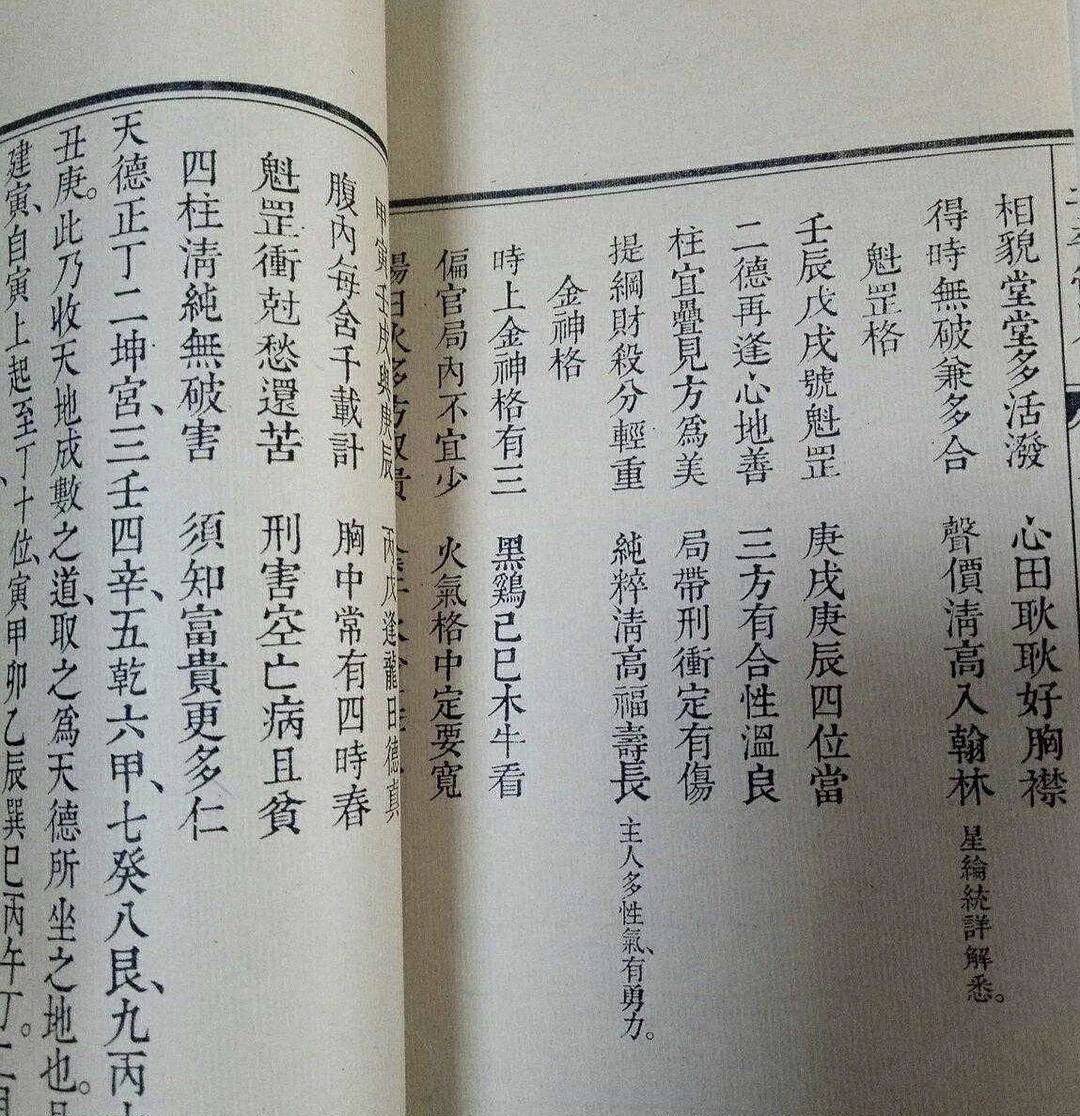 相貌堂堂多活潑　心田耿耿好胸襟
得時無破兼多合　聲價清高入翰林　星綸統詳解悉。
魁罡格
壬辰戊戌號魁罡　庚戌庚辰四位當
二德再逢心地善　三方有合性溫良
柱宜疊見方為美　局帶刑衝定有傷
提綱財殺分輕重　純粹清高福壽長　主人多性氣、有勇力。
金神格
時上金神格有三　黑鷄己巳木牛看
偏官局內不宜少　火氣格中定要寬
陽日火多方取貴
甲寅壬戌與庚辰　丙戊逢龍日德真
腹內每含千載計　胸中常有四時春
魁罡衝尅愁還苦　刑害空亡病且貧
四柱清純無破害　須知富貴更多仁
天德正丁二坤宮、三壬四辛、五乾六甲、七癸八艮、九丙
丑庚。此乃收天地成數之道、取之為天德所坐之地也。
建寅、自寅上起至丁十位、寅甲卯乙辰巽巳丙午丁。